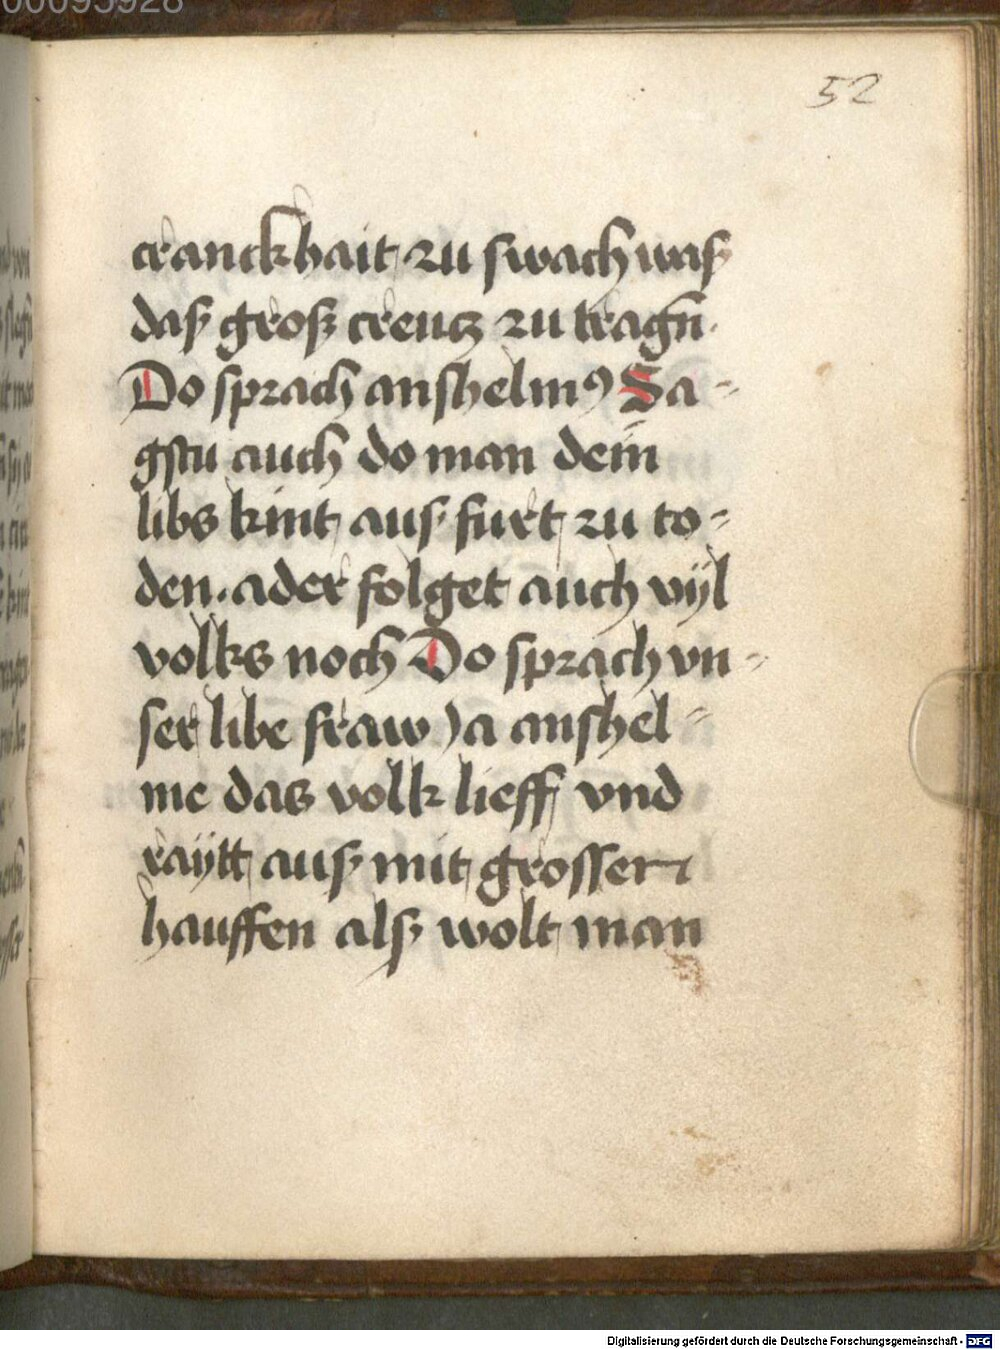 00095928
52
cranckhait zu swach waß
daß groß creutz zu tragn̄.
Do sprach anshelmꝰ Sa-
gstu auch do man dein̄
libs kint auß furt zu to-
den. ader folget auch vÿl
volks noch Do sprach vn-
ser libe fraw Ja anshel-
me das volk lieff vnd
raÿtt auß mit grosser
hauffen alß wolt man
Digitalisierung gefördert durch die Deutsche Forschungsgemeinschaft - DFG